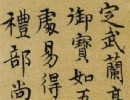 定武蘭亭
御寶如五
處易得
禮部尚